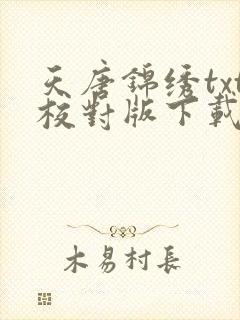 天唐锦绣txt
校對版下載
木易村長